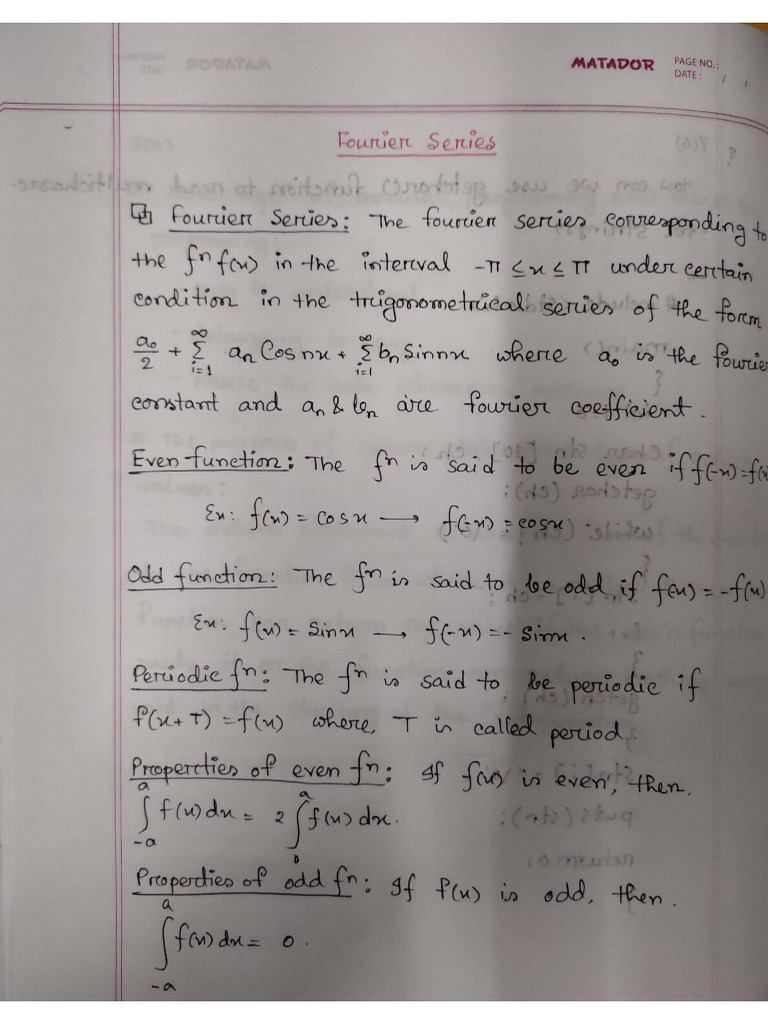 MATADOR PAGE NO.:
DATE: / /
Fourier Series
Fourier Series: The fourier series corresponding to
the fⁿ f(x) in the interval -π ≤ x ≤ π under certain
condition in the trigonometrical series of the form
a₀/2 + ∞Σi=1 aₙ Cos nx + ∞Σi=1 bₙ Sin nx where a₀ is the fourier
constant and aₙ & bₙ are fourier coefficient.
Even function: The fⁿ is said to be even if f(-x) = f(x
Ex: f(x) = cos x → f(-x) = cos x.
Odd function: The fⁿ is said to be odd, if f(x) = -f(x)
Ex: f(x) = Sin x → f(-x) = - Sin x.
Periodic fⁿ: The fⁿ is said to be periodic if
f(x+T) = f(x) where, T is called period.
Properties of even fⁿ: If f(x) is even, then,
∫₋ₐᵃ f(x) dx = 2 ∫₀ᵃ f(x) dx.
Properties of odd fⁿ: If f(x) is odd, then.
∫₋ₐᵃ f(x) dx = 0.